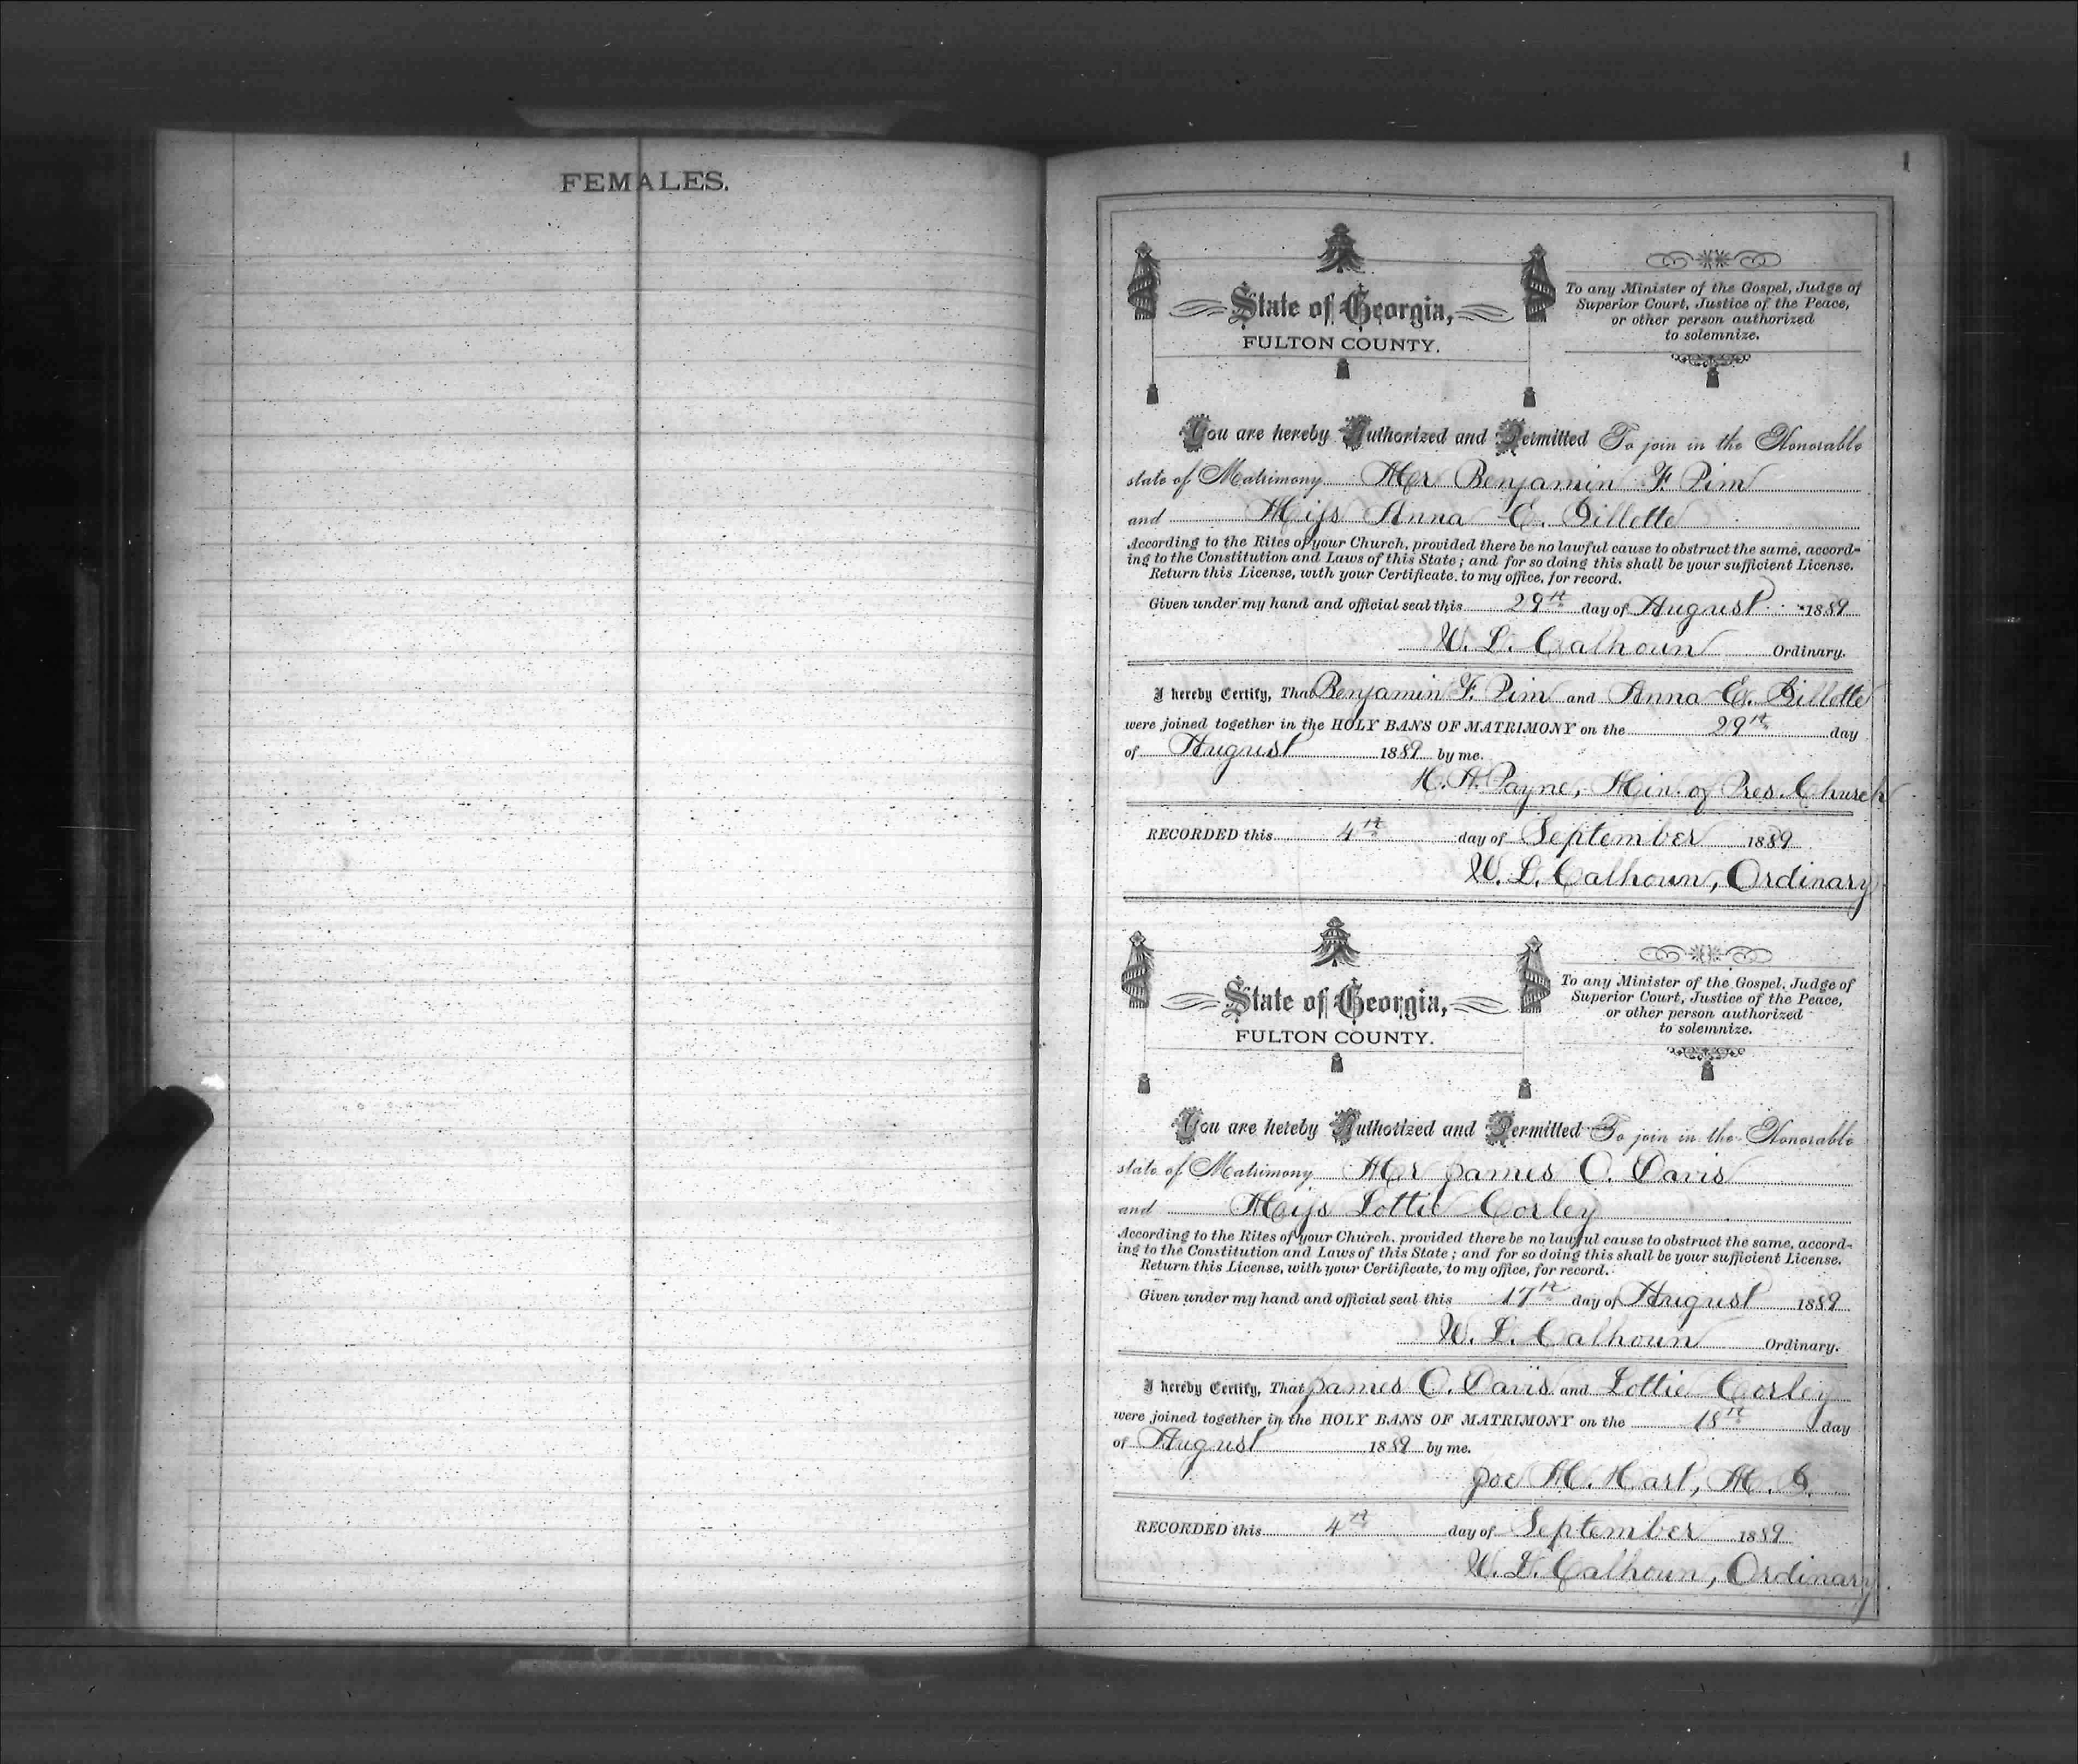 FEMALES.
1
State of Georgia,
FULTON COUNTY.
To any Minister of the Gospel, Judge of
Superior Court, Justice of the Peace,
or other person authorized
to solemnize.
You are hereby Authorized and Permitted To join in the Honorable
state of Matrimony Mr Benjamin F. Pim
and Miss Anna E. Gillette
According to the Rites of your Church, provided there be no lawful cause to obstruct the same, accord-
ing to the Constitution and Laws of this State; and for so doing this shall be your sufficient License.
Return this License, with your Certificate, to my office, for record.
Given under my hand and official seal this 29th day of August 1889
W. L. Calhoun Ordinary.
I hereby Certify, That Benjamin F. Pim and Anna E. Gillette
were joined together in the HOLY BANS OF MATRIMONY on the 29th day
of August 1889 by me.
Payne, Min. of Pres. Church
RECORDED this 4th day of September 1889
W. L. Calhoun, Ordinary
State of Georgia,
FULTON COUNTY.
To any Minister of the Gospel, Judge of
Superior Court, Justice of the Peace,
or other person authorized
to solemnize.
You are hereby Authorized and Permitted To join in the Honorable
state of Matrimony Mr James O. Davis
and Miss Lottie Corley
According to the Rites of your Church, provided there be no lawful cause to obstruct the same, accord-
ing to the Constitution and Laws of this State; and for so doing this shall be your sufficient License.
Return this License, with your Certificate, to my office, for record.
Given under my hand and official seal this 17th day of August 1889
W. L. Calhoun Ordinary.
I hereby Certify, That James O. Davis and Lottie Corley
were joined together in the HOLY BANS OF MATRIMONY on the 18th day
of August 1889 by me.
Joe M. Hart, M. G.
RECORDED this 4th day of September 1889
W. L. Calhoun, Ordinary.